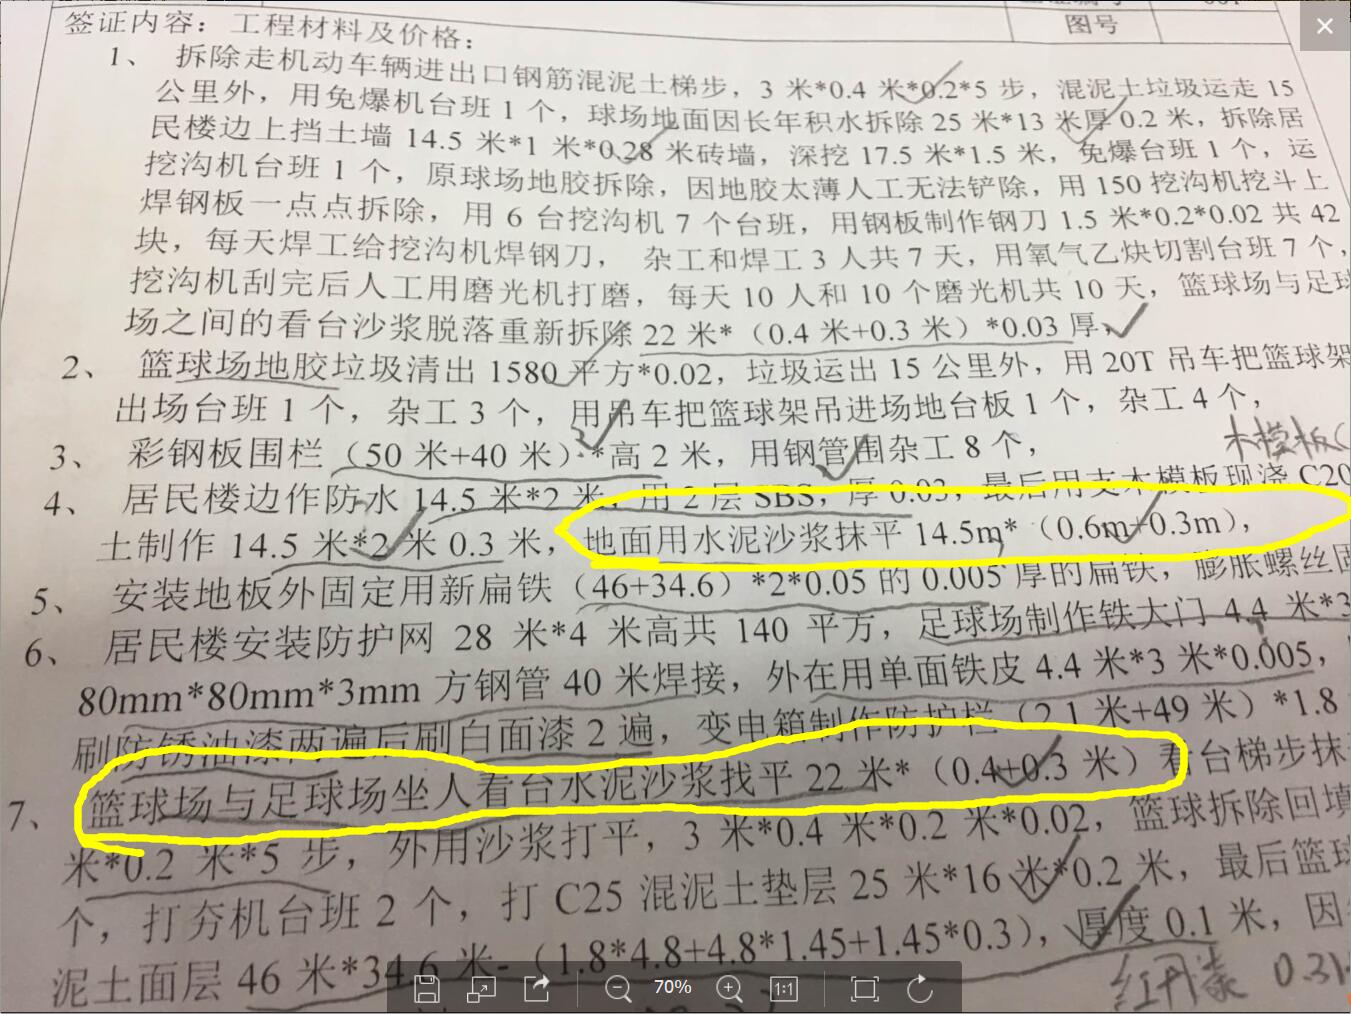 签证内容：工程材料及价格：
图号
1、 拆除走机动车辆进出口钢筋混泥土梯步，3 米*0.4 米*0.2*5 步，混泥土垃圾运走 15
公里外，用免爆机台班 1 个，球场地面因长年积水拆除 25 米*13 米厚 0.2 米，拆除居
民楼边上挡土墙 14.5 米*1 米*0.28 米砖墙，深挖 17.5 米*1.5 米，免爆台班 1 个，运
挖沟机台班 1 个，原球场地胶拆除，因地胶太薄人工无法铲除，用 150 挖沟机挖斗上
焊钢板一点点拆除，用 6 台挖沟机 7 个台班，用钢板制作钢刀 1.5 米*0.2*0.02 共 42
块，每天焊工给挖沟机焊钢刀， 杂工和焊工 3 人共 7 天，用氧气乙炔切割台班 7 个，
挖沟机刮完后人工用磨光机打磨，每天 10 人和 10 个磨光机共 10 天，篮球场与足球
场之间的看台沙浆脱落重新拆除 22 米*（0.4 米+0.3 米）*0.03 厚，
2、 篮球场地胶垃圾清出 1580 平方*0.02，垃圾运出 15 公里外，用 20T 吊车把篮球架
出场台班 1 个，杂工 3 个，用吊车把篮球架吊进场地台板 1 个，杂工 4 个，
3、 彩钢板围栏（50 米+40 米）*高 2 米，用钢管围杂工 8 个，
木模板
4、 居民楼边作防水 14.5 米*2 米，用 2 层 SBS，厚 0.03，最后用支木模板现浇 C20
土制作 14.5 米*2 米 0.3 米，地面用水泥沙浆抹平 14.5m*（0.6m+0.3m），
5、 安装地板外固定用新扁铁（46+34.6）*2*0.05 的 0.005 厚的扁铁，膨胀螺丝固
6、 居民楼安装防护网 28 米*4 米高共 140 平方，足球场制作铁大门 4.4 米*3
80mm*80mm*3mm 方钢管 40 米焊接，外在用单面铁皮 4.4 米*3 米*0.005，
刷防锈油漆两遍后刷白面漆 2 遍，变电箱制作防护栏（2.1 米+49 米）*1.8
7、 篮球场与足球场坐人看台水泥沙浆找平 22 米*（0.4+0.3 米）看台梯步抹
米*0.2 米*5 步，外用沙浆打平，3 米*0.4 米*0.2 米*0.02，篮球拆除回填
个，打夯机台班 2 个，打 C25 混泥土垫层 25 米*16 米*0.2 米，最后篮球
泥土面层 46 米*34.6 米-（1.8*4.8+4.8*1.45+1.45*0.3），厚度 0.1 米，因
红丹漆 0.31
70%
1:1